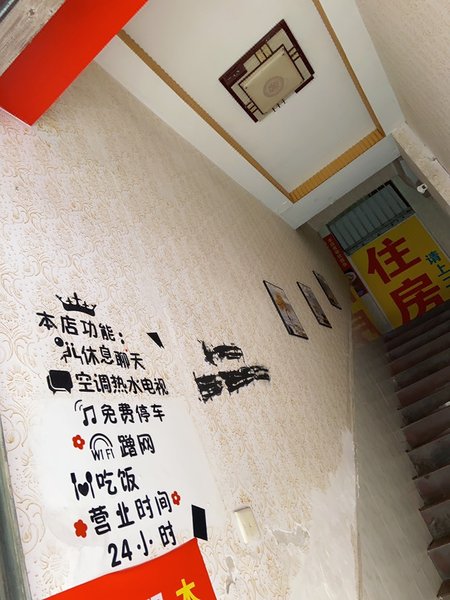 本店功能：
休息聊天
空调热水电视
免费停车
WIFI 蹭网
吃饭
营业时间
24小时
住
房
请上